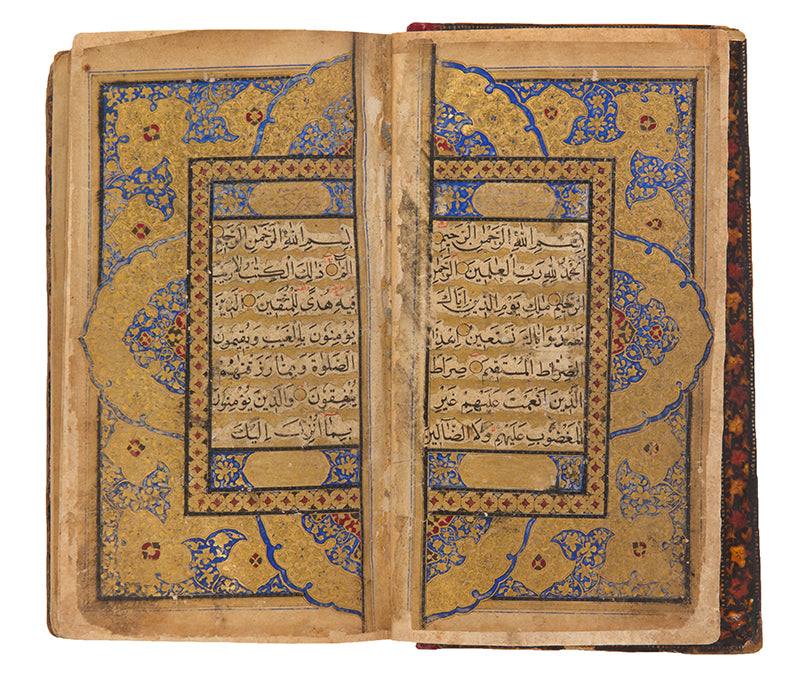 بسم الله الرحمن الرحيم
الحمد لله رب العلمين الرحمن
الرحيم ملك يوم الدين اياك
نعبد واياك نستعين اهدنا
الصراط المستقيم صراط
الذين انعمت عليهم غير
المغضوب عليهم ولا الضالين
بسم الله الرحمن الرحيم
الم ذلك الكتب لا ريب
فيه هدى للمتقين الذين
يؤمنون بالغيب ويقيمون
الصلوة ومما رزقنهم
ينفقون والذين يؤمنون
بما انزل اليك